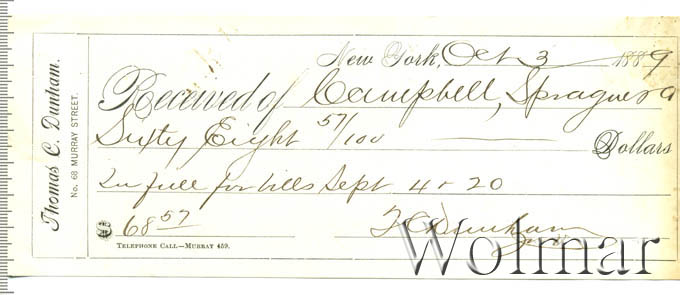 Thomas C. Dunham.
No. 68 MURRAY STREET.
New York, Oct 3 1889
Received of Campbell, Sprague &
Sixty Eight 57/100 Dollars
In full for bills Sept 4 & 20
$ 68 57 T C Dunham
TELEPHONE CALL—MURRAY 459.
Wolmar